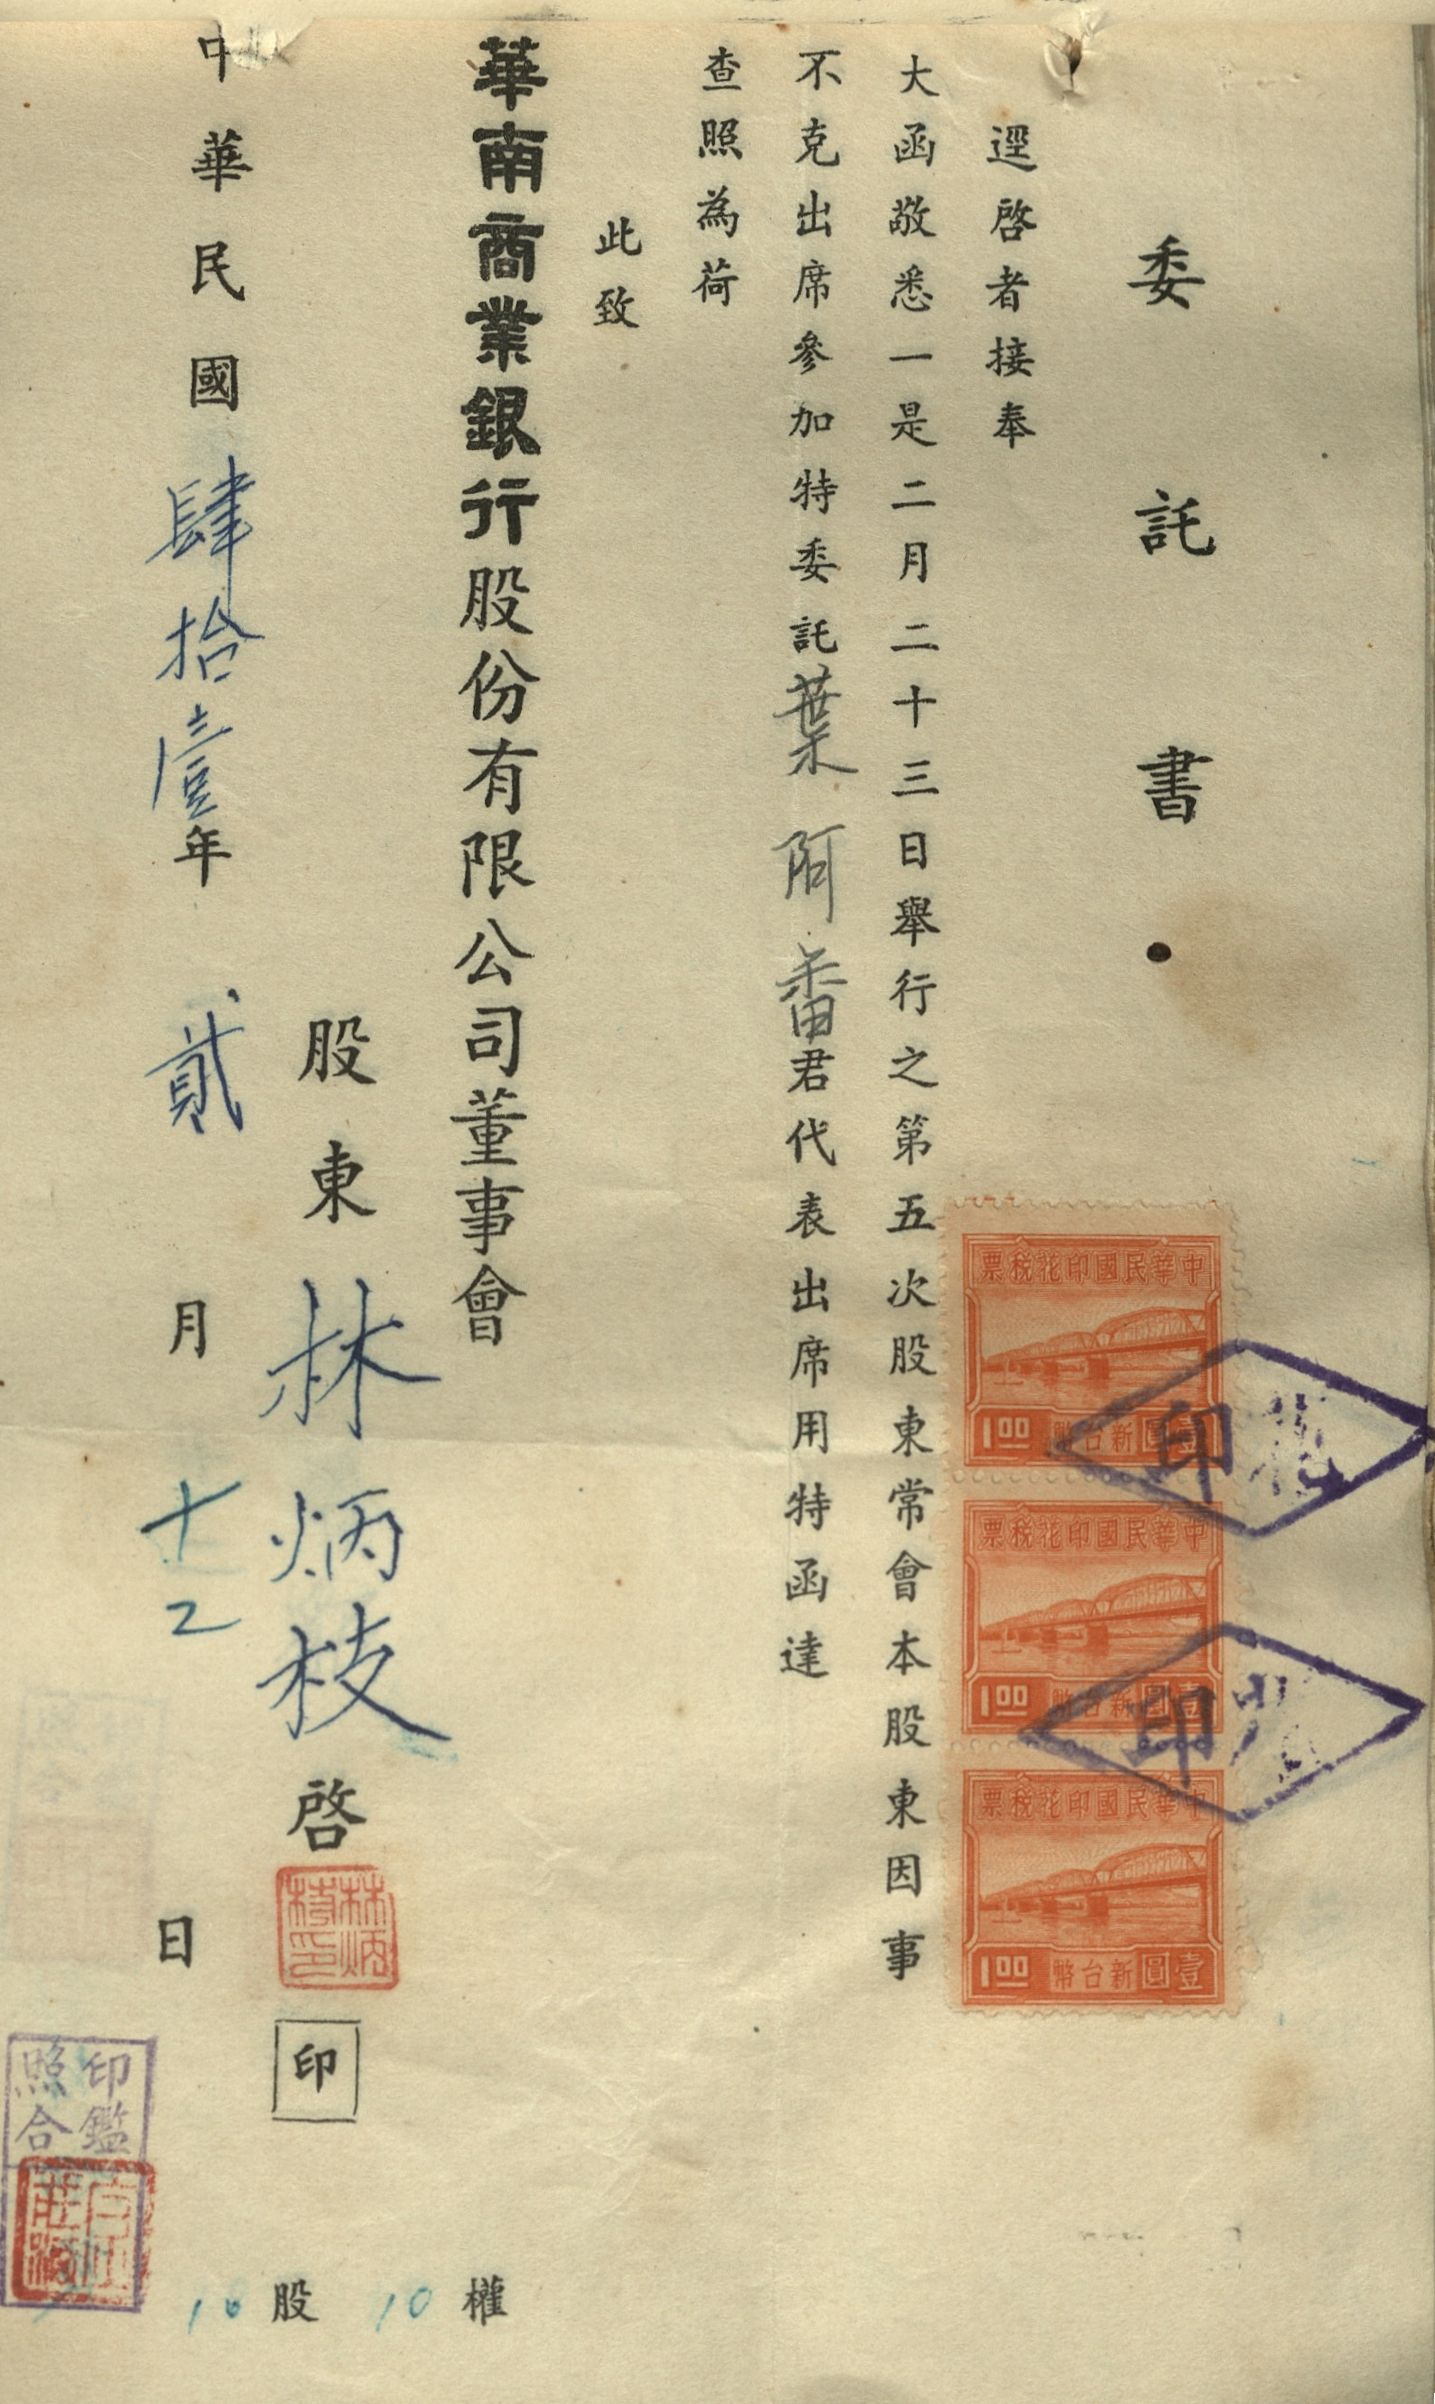 委託書
逕啓者接奉
大函敬悉一是二月二十三日舉行之第五次股東常會本股東因事
不克出席參加特委託葉阿番君代表出席用特函達
查照為荷
此致
華南商業銀行股份有限公司董事會
股東林炳枝啓
林炳枝印
印
中華民國肆拾壹年貳月十二日
權10
股10
印鑑照合
中華民國印花稅票
壹圓新台幣
1.00
中華民國印花稅票
壹圓新台幣
1.00
中華民國印花稅票
壹圓新台幣
1.00
花印
印